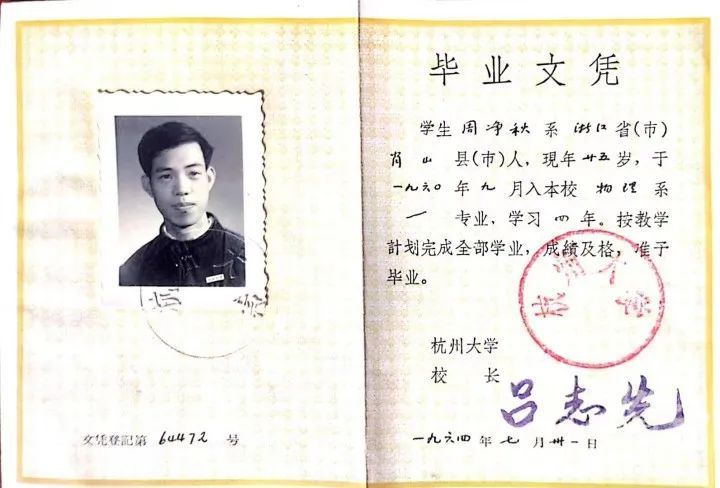 文凭登記第 64472 号
毕业文凭
学生周净秋系浙江省(市)
肖山县(市)人，現年廿五岁，于
一九六〇年九月入本校物理系
一专业，学习四年。按教学
計划完成全部学业，成績及格，准予
毕业。
杭州大学
校 长
吕志先
一九六四年七月卅一日
杭州大学